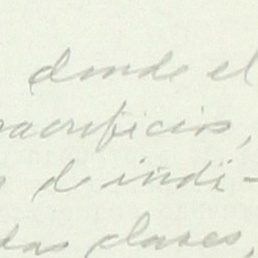 donde el
sacrificios,
s de indi-
das clases,